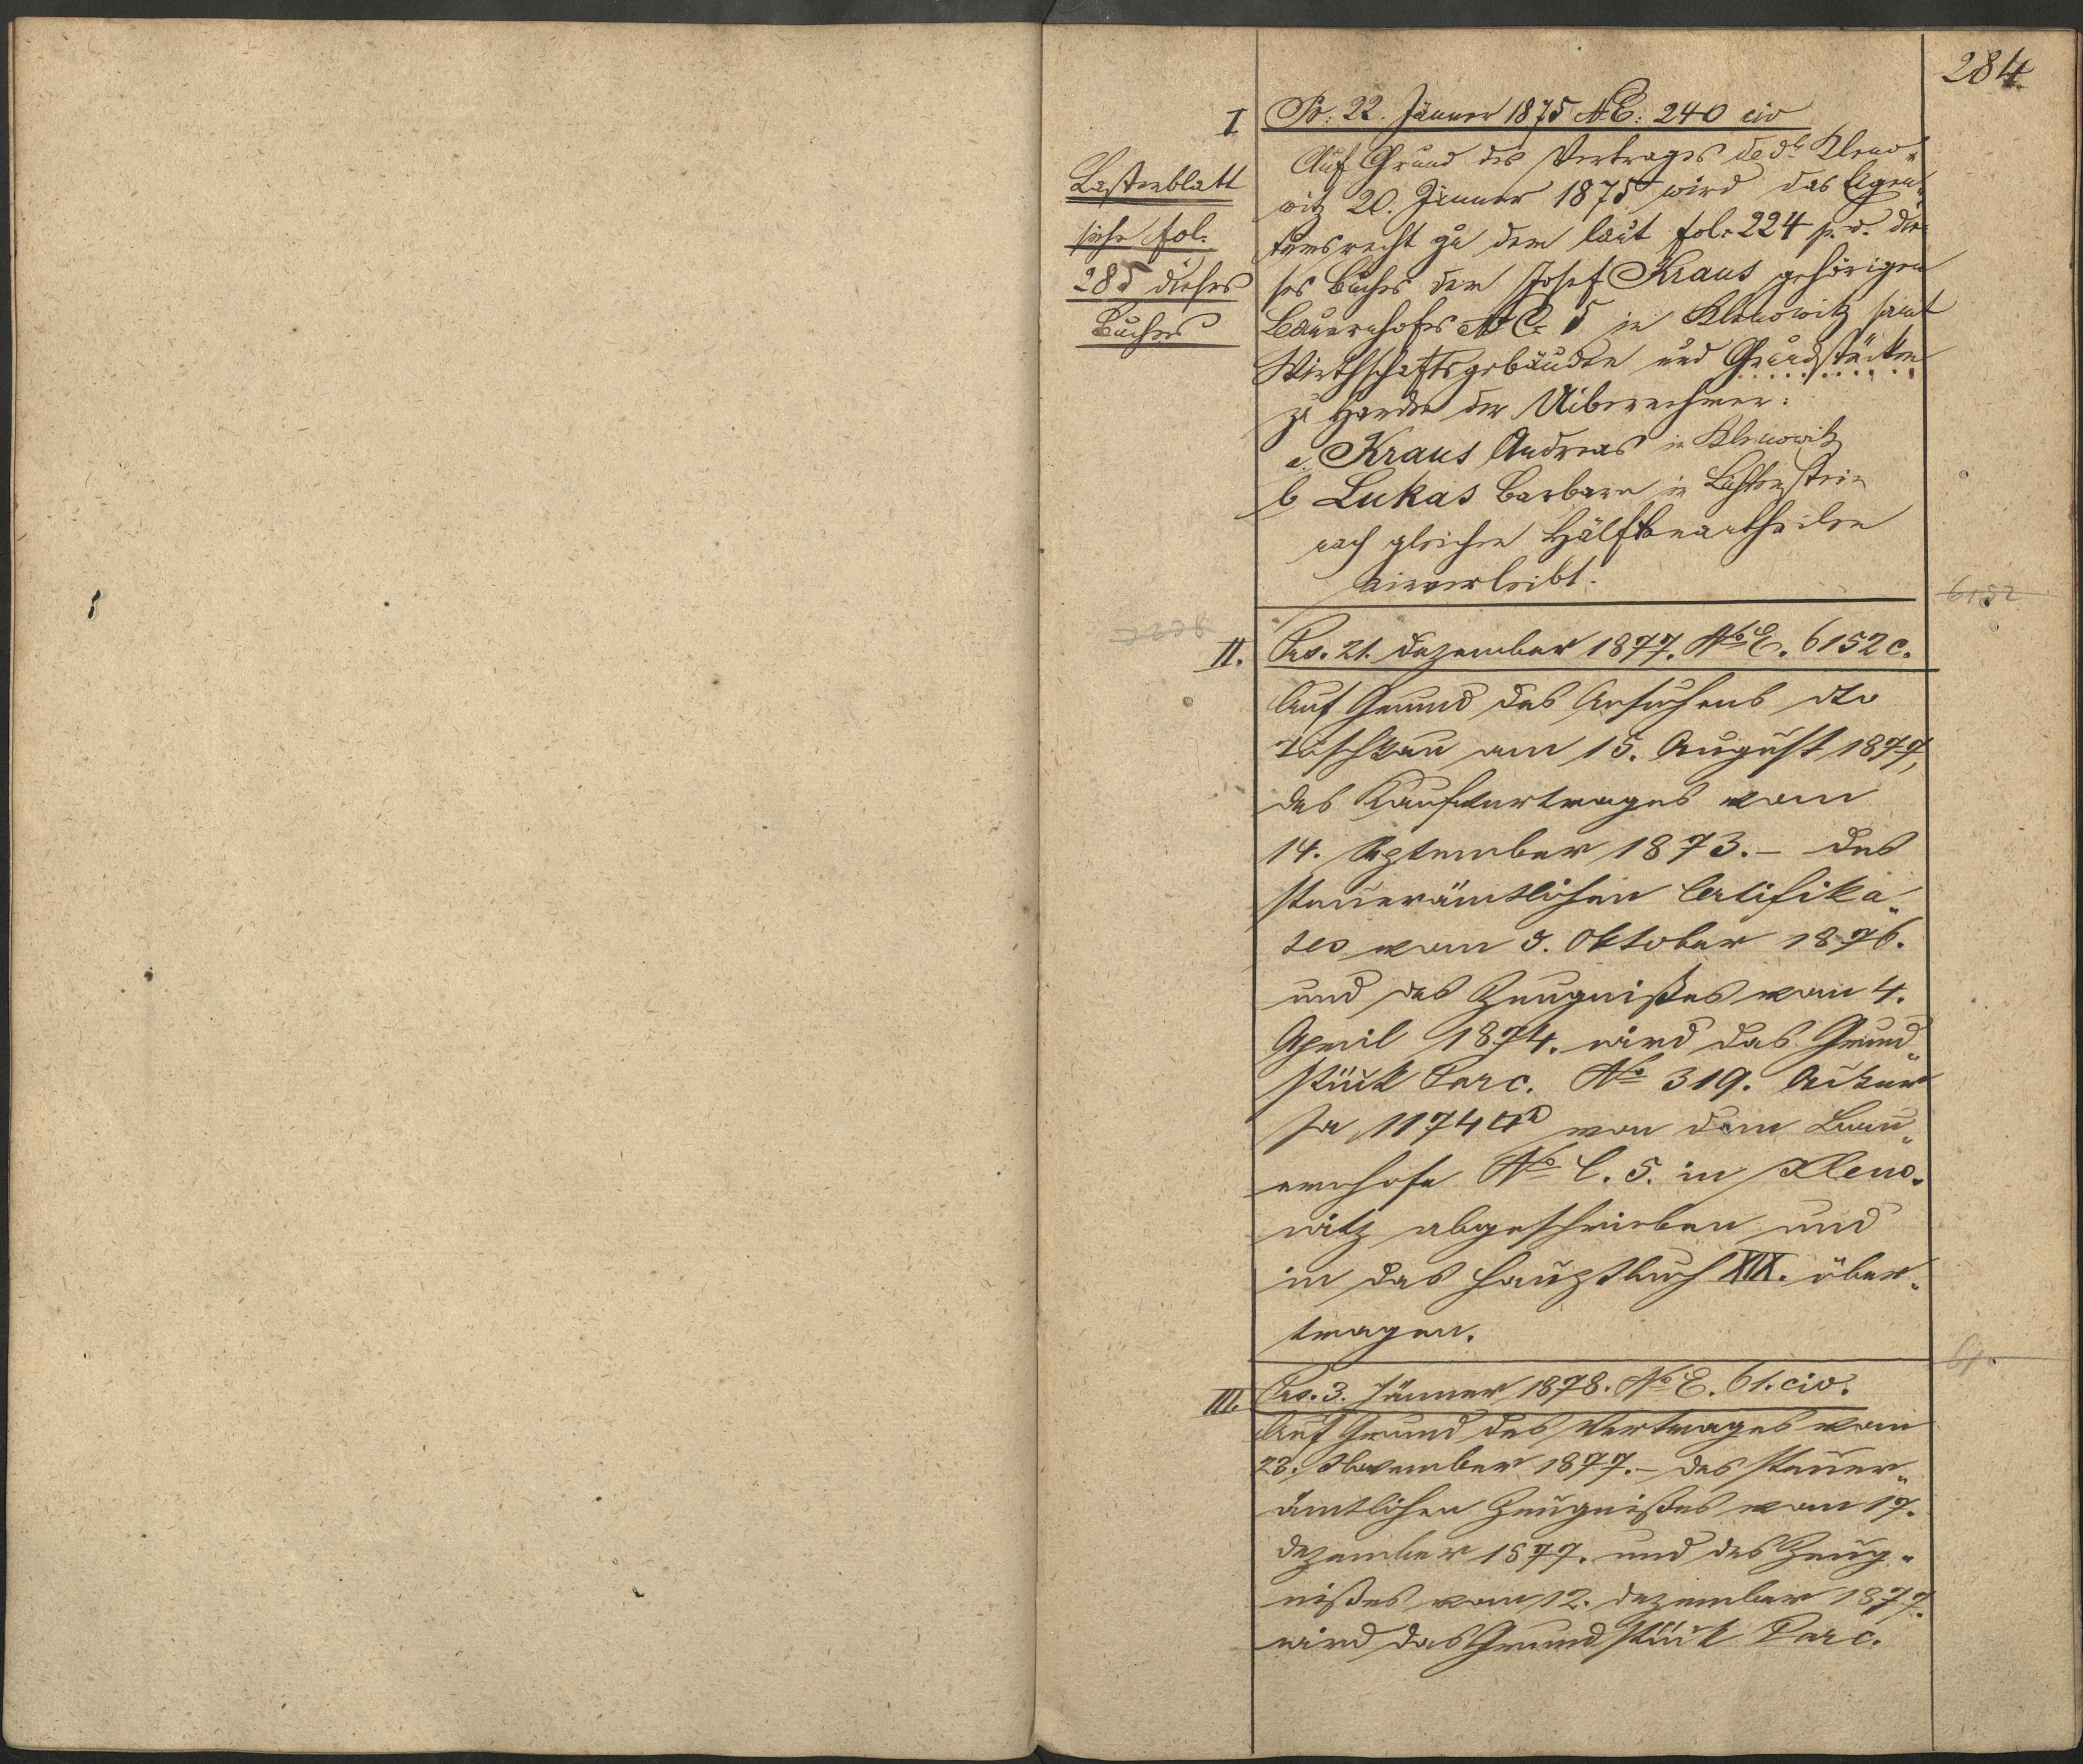 284.
I Pr: 22. Jänner 1875 N.E: 240 civ
Lastenblatt
siehe fol.
285 dieses
Buches
Auf Grund des Vertrages de dto Kleno„
witz 20. Jänner 1875 wird das Eigen„
tumsrecht zu dem laut fol. 224 p. v. die
ses Buches dem Josef Kraus gehörigen
Bauernhofes N C. 5 in Klenowitz samt
Wirthschaftsgebäuden und Grundstücken
zu Handen der Uibernehmer:
a. Kraus Andreas in Klenowitz
b Lukas Barbara in Lichtenstein
nach gleichen Hälfteantheilen
einverleibt.
6152
II. Prs. 21. Dezember 1877. No E. 6152 c.
Auf Grund des Ansuchens dto
Tuschkau am 15. August 1877,
des Kaufvertrages vom
14. September 1873. – des
steuerämtlichen Certifika„
tes vom 5. Oktober 1876.
und des Zeugnißes vom 4.
April 1874. wird das Grund„
stück Parc. No 319. Acker
pr 1174 □° von dem Bau„
ernhofe No C. 5. in Kleno.
witz abgeschrieben und
in das Hauptbuch XIX. über„
tragen.
61.
III. Prs. 3. Jänner 1878. No E. 61. civ.
Auf Grund des Vertrages vom
23. November 1877. – des steuer„
ämtlichen Zeugnißes vom 17.
Dezember 1877. und des Zeug„
nißes vom 12. Dezember 1877.
wird das Grundstück Parc.